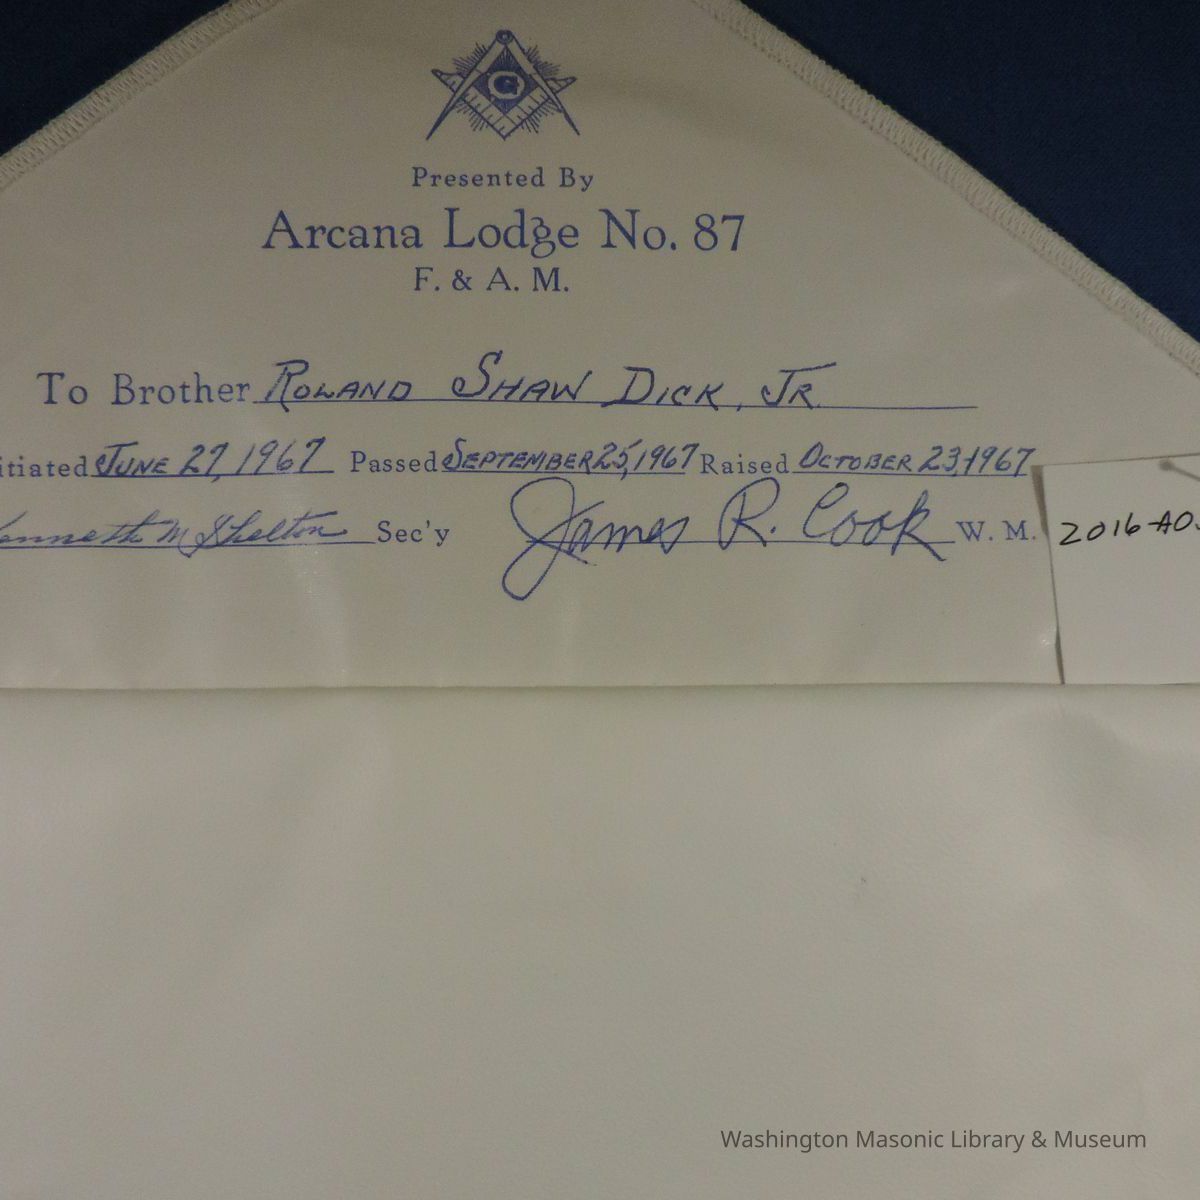 G
Presented By
Arcana Lodge No. 87
F. & A. M.
To Brother ROLAND SHAW DICK, JR.
itiated JUNE 27, 1967 Passed SEPTEMBER 25, 1967 Raised OCTOBER 23, 1967
Kenneth M Shelton Sec'y James R. Cook W. M.
2016-A0
Washington Masonic Library & Museum